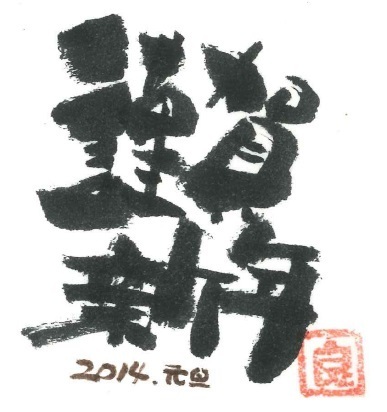 謹賀
新年
2014.元旦
良